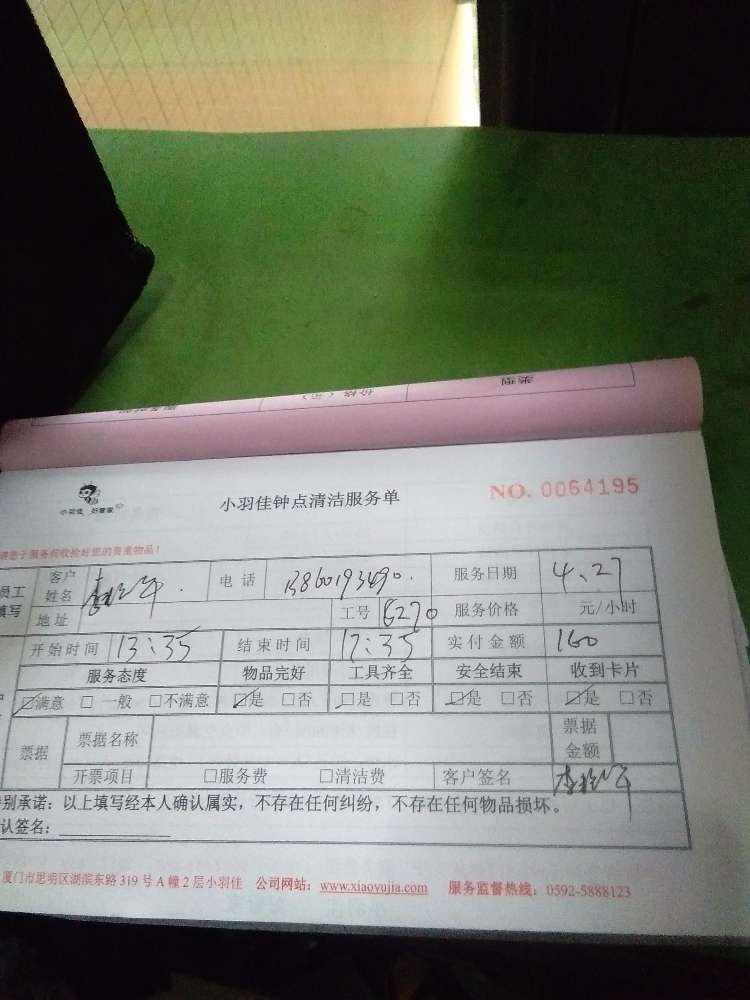 类型
价格（元）
小羽佳 好管家
小羽佳钟点清洁服务单
NO. 0054195
请您于服务前收拾好您的贵重物品！
员工填写
客户姓名
电话 13860193490.
服务日期 4、27
地址
工号 6270
服务价格 元/小时
开始时间 13:35
结束时间 17:35
实付金额 160
服务态度 物品完好 工具齐全 安全结束 收到卡片
☑满意 □ 一般 □不满意 ☑是 □否 ☑是 □否 ☑是 □否 ☑是 □否
票据
票据名称
票据金额
开票项目 □服务费 □清洁费 客户签名
特别承诺：以上填写经本人确认属实，不存在任何纠纷，不存在任何物品损坏。
认签名：
厦门市思明区湖滨东路 319 号 A 幢 2 层小羽佳 公司网站：www.xiaoyujia.com 服务监督热线：0592-5888123